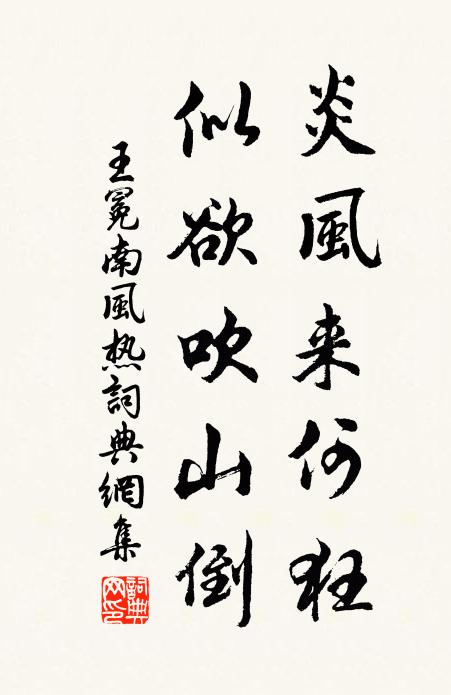 炎風来何狂
似欲吹山倒
王冕南風热詞典網集
詞典網印